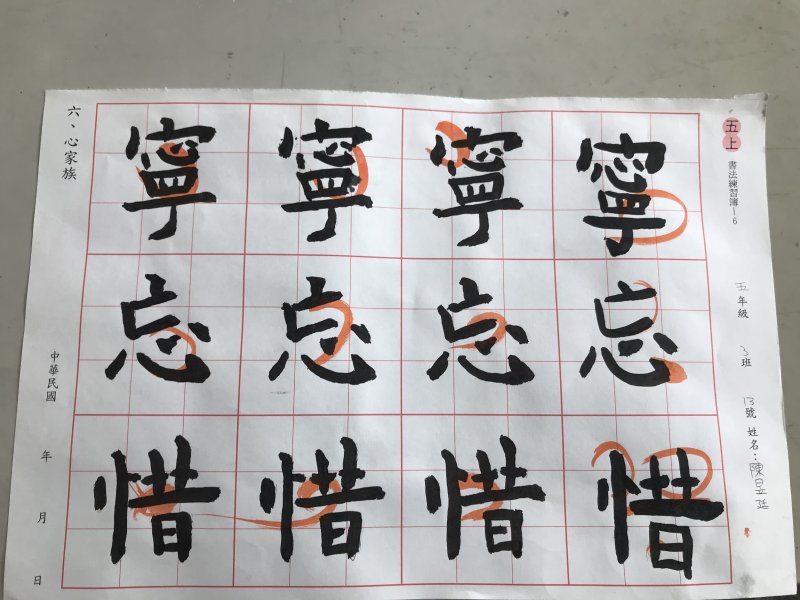 五上 書法練習簿－6
五年級 3班 13號 姓名：陳昱廷
寧忘惜
寧忘惜
寧忘惜
寧忘惜
六、心家族
中華民國 年 月 日